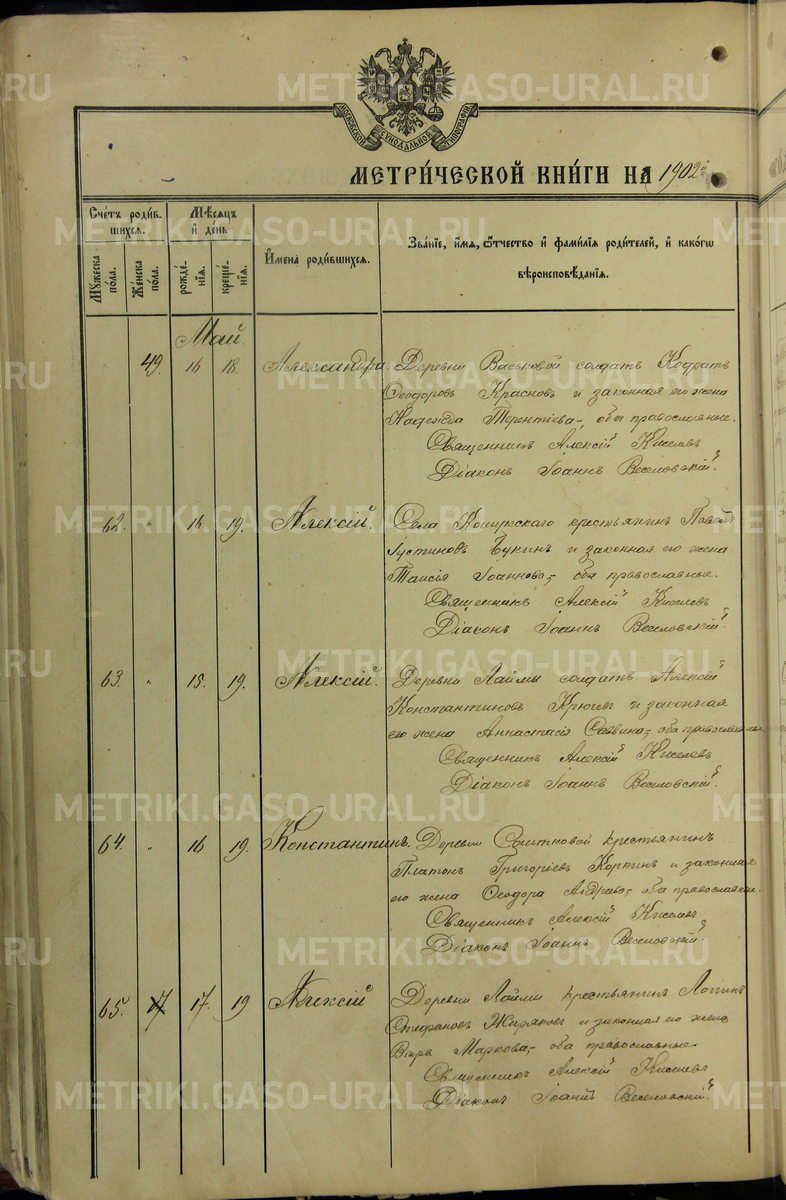 МОСКОВСКОЙ СѴНОДАЛЬНОЙ ТИПОГРАФІИ
МЕТРИ́ЧЕСКОЙ КНИ́ГИ НА 1902 г.
Сче́тъ роди́в-
шихся.
Мѣ́сяцъ
и҆ де́нь
И҆мена̀ роди́вшихся.
Зва́нїе, и҆́мя, ѻ҆́тчество и҆ фами́лїя роди́телей, и҆ како́гѡ
вѣроисповѣ́данїя.
Му́жеска
по́ла.
Же́нска
по́ла.
рожде́-
нїя.
креще́-
нїя.
Май.
" 49. 16 18. Александра. Деревни Васьковой солдатъ Кодратъ
Ѳеодоровъ Красновъ и законная его жена
Надежда Терентіева, оба православные.
Священникъ Алексій Киселевъ
Діаконъ Іоаннъ Веселовскій.
62. " 16 19. Алексій. Села Кошукскаго крестьянинъ Павелъ
Іустиновъ Букинъ и законная его жена
Таисія Іоаннова, оба православные.
Священникъ Алексій Киселевъ
Діаконъ Іоаннъ Веселовскій.
63. " 15. 19. Алексій. Деревни Лаймы солдатъ Алексій
Константиновъ и законная
его жена Анастасія Саввина, оба православные.
Священникъ Алексій Киселевъ
Діаконъ Іоаннъ Веселовскій.
64. " 16 19. Константинъ. Деревни крестьянинъ
Платонъ Григоріевъ Коркинъ и законная
его жена Ѳеодора оба православные.
Священникъ Алексій Киселевъ
Діаконъ Іоаннъ Веселовскій.
65. 17 17. 19 Алексій Деревни Лаймы крестьянинъ
Стефановъ Жиряковъ и законная его жена
Вѣра Маркова, оба православные.
Священникъ Алексій Киселевъ
Діаконъ Іоаннъ Веселовскій.
METRIKI.GASO-URAL.RU